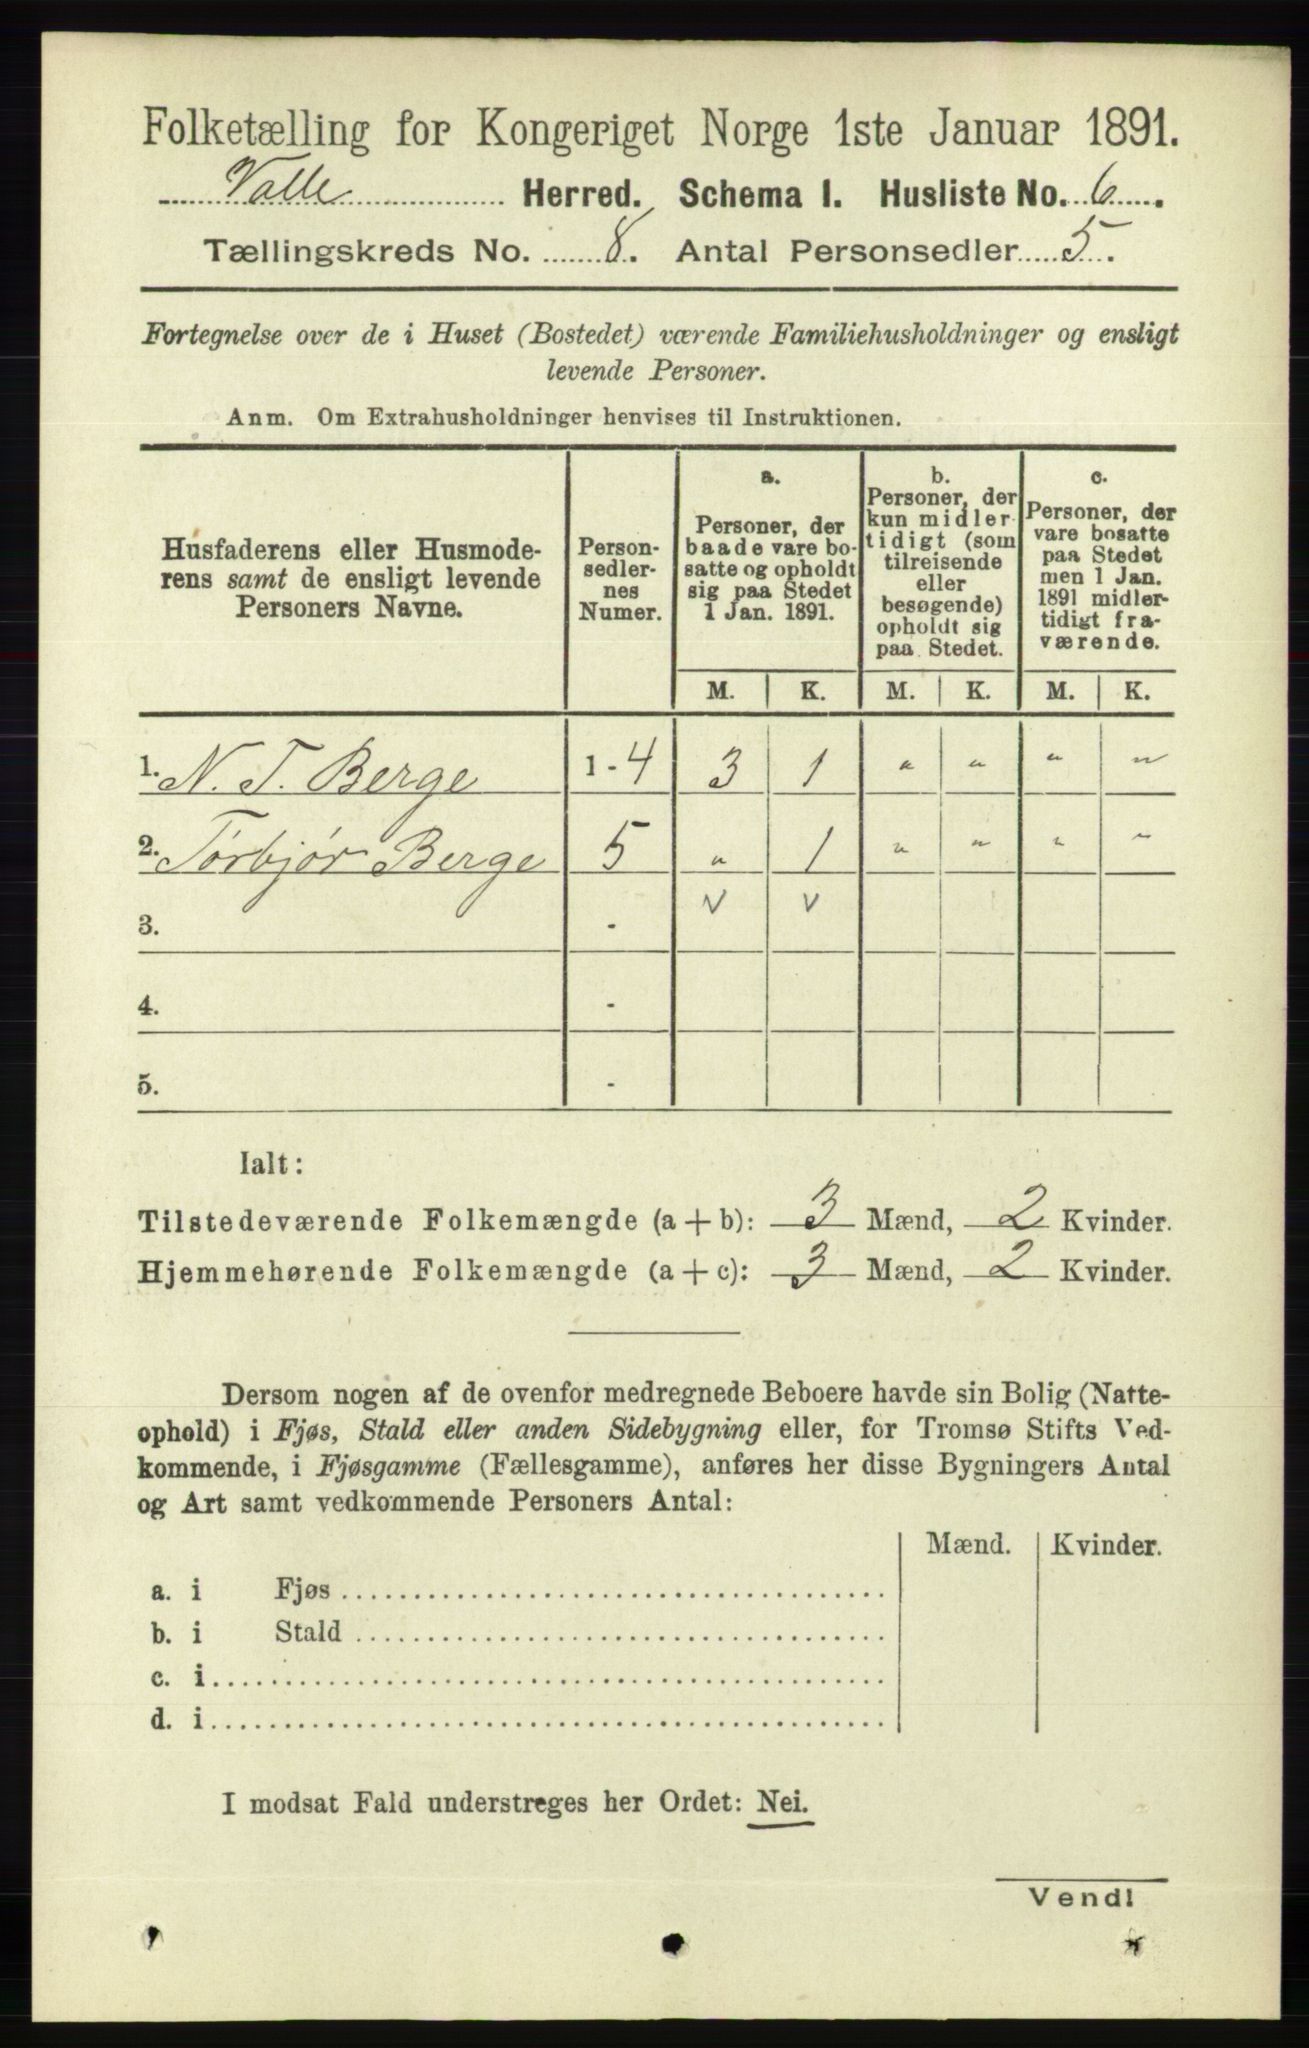 Folketælling for Kongeriget Norge 1ste Januar 1891.
Valle Herred. Schema I. Husliste No. 6.
Tællingskreds No. 8. Antal Personsedler 5.
Fortegnelse over de i Huset (Bostedet) værende Familiehusholdninger og ensligt
levende Personer.
Anm. Om Extrahusholdninger henvises til Instruktionen.
Husfaderens eller Husmode-
rens samt de ensligt levende
Personers Navne.
Person-
sedler-
nes
Numer.
a.
Personer, der
baade vare bo-
satte og opholdt
sig paa Stedet
1 Jan. 1891.
b.
Personer, der
kun midler-
tidigt (som
tilreisende
eller
besøgende)
opholdt sig
paa Stedet.
c.
Personer, der
vare bosatte
paa Stedet
men 1 Jan.
1891 midler-
tidigt fra-
værende.
M. K. M. K. M. K.
1. N. T. Berge 1-4 3 1 " " " "
2. Torbjør Berge 5 " 1 " " " "
v v
3. -
4. -
5. -
Ialt:
Tilstedeværende Folkemængde (a + b): 3 Mænd, 2 Kvinder.
Hjemmehørende Folkemængde (a + c): 3 Mænd, 2 Kvinder.
Dersom nogen af de ovenfor medregnede Beboere havde sin Bolig (Natte-
ophold) i Fjøs, Stald eller anden Sidebygning eller, for Tromsø Stifts Ved-
kommende, i Fjøsgamme (Fællesgamme), anføres her disse Bygningers Antal
og Art samt vedkommende Personers Antal:
Mænd. Kvinder.
a. i Fjøs
b. i Stald
c. i
d. i
I modsat Fald understreges her Ordet: Nei.
Vend!